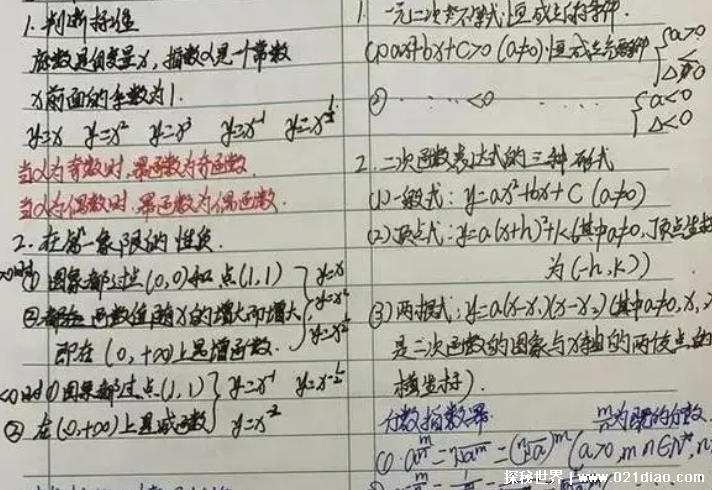 1. 判断标准
底数是自变量x，指数α是一个常数
x前面的系数为1.
y=x y=x² y=x³ y=x⁻¹ y=x^½
当α为奇数时，幂函数为奇函数.
当α为偶数时，幂函数为偶函数.
2. 在第一象限的性质.
>0时 ① 图象都过点(0,0)和点(1,1) } y=x
② 函数值随x的增大而增大, y=x²
即在(0,+∞)上是增函数. y=x^½
<0时 ① 图象都过点(1,1) } y=x⁻¹ y=x^-½
② 在(0,+∞)上是减函数 y=x⁻²
1. 一元二次不等式恒成立的条件.
(1) ax²+bx+c>0 (a≠0) 恒成立充要条件 { a>0
Δ<0
② · · · · · · <0 · · · { a<0
Δ<0
2. 二次函数表达式的三种形式
(1) 一般式: y=ax²+bx+c (a≠0)
(2) 顶点式: y=a(x+h)²+k (其中a≠0, 顶点坐标
为(-h,k))
(3) 两根式: y=a(x-x₁)(x-x₂) (其中a≠0, x₁,
是二次函数的图象与x轴的两交点的
横坐标).
分数指数幂 m/n 为既约分数.
(1) a^(m/n) = ⁿ√a^m = (ⁿ√a)^m (a>0, m n∈N*, n
探秘世界 | www.021diao.com